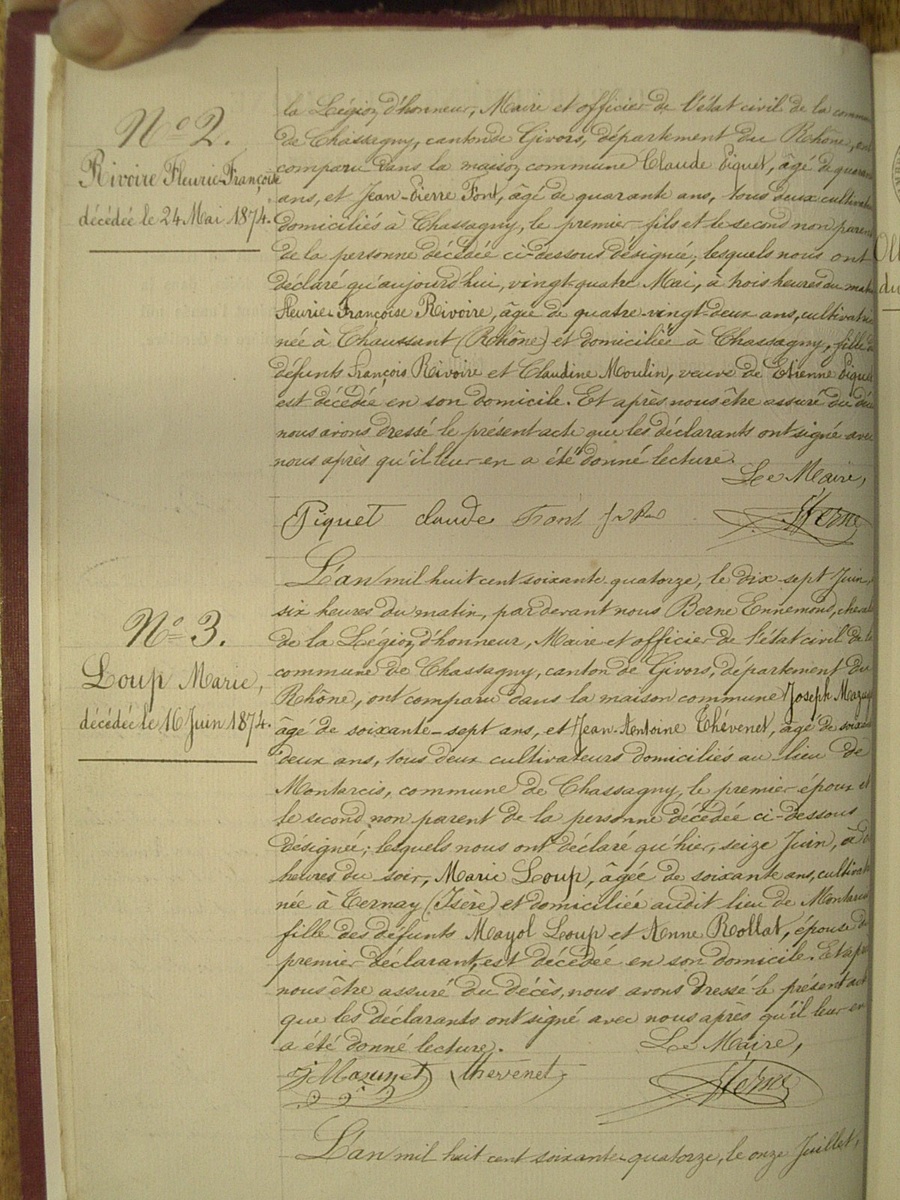 N° 2.
Rivoire Fleurie-Françoise
décédée le 24 Mai 1874.
la Légion d'honneur, Maire et officier de l'état civil de la
de Chassagny, canton de Givors, département du Rhône,
comparu dans la maison commune Claude Piquet, âgé de
ans, et Jean-Pierre Font, âgé de quarante ans, tous deux
domiciliés à Chassagny, le premier fils et le second non parent
de la personne décédée ci-dessous désignée; lesquels nous ont
déclaré qu'aujourd'hui, vingt-quatre Mai, à trois heures du
Fleurie-Françoise Rivoire, âgée de quatre-vingt-deux ans,
née à Chaussant (Rhône) et domiciliée à Chassagny, fille
défunts François Rivoire et Claudine Moulin, veuve de Etienne
est décédée en son domicile. Et après nous être assuré du
nous avons dressé le présent acte que les déclarants ont signé avec
nous après qu'il leur en a été donné lecture.
Le Maire,
Piquet claude Font
N° 3.
Loup Marie,
décédée le 16 Juin 1874.
L'an mil huit cent soixante-quatorze, le dix-sept Juin,
six heures du matin, par devant nous Berne Ennemond,
de la Légion d'honneur, Maire et officier de l'état civil de
commune de Chassagny, canton de Givors, département du
Rhône, ont comparu dans la maison commune Joseph
âgé de soixante-sept ans, et Jean-Antoine Thévenet, âgé de
deux ans, tous deux cultivateurs domiciliés au lieu de
Montarcis, commune de Chassagny, le premier époux et
le second non parent de la personne décédée ci-dessous
désignée; lesquels nous ont déclaré qu'hier, seize Juin, à
heures du soir, Marie Loup, âgée de soixante ans,
née à Ternay (Isère) et domiciliée audit lieu de
fille des défunts Mayol Loup et Anne Rollat, épouse
premier déclarant, est décédée en son domicile. Et
nous être assuré du décès, nous avons dressé le présent
que les déclarants ont signé avec nous après qu'il leur en
a été donné lecture.
Le Maire,
Thevenet
L'an mil huit cent soixante-quatorze, le onze Juillet,